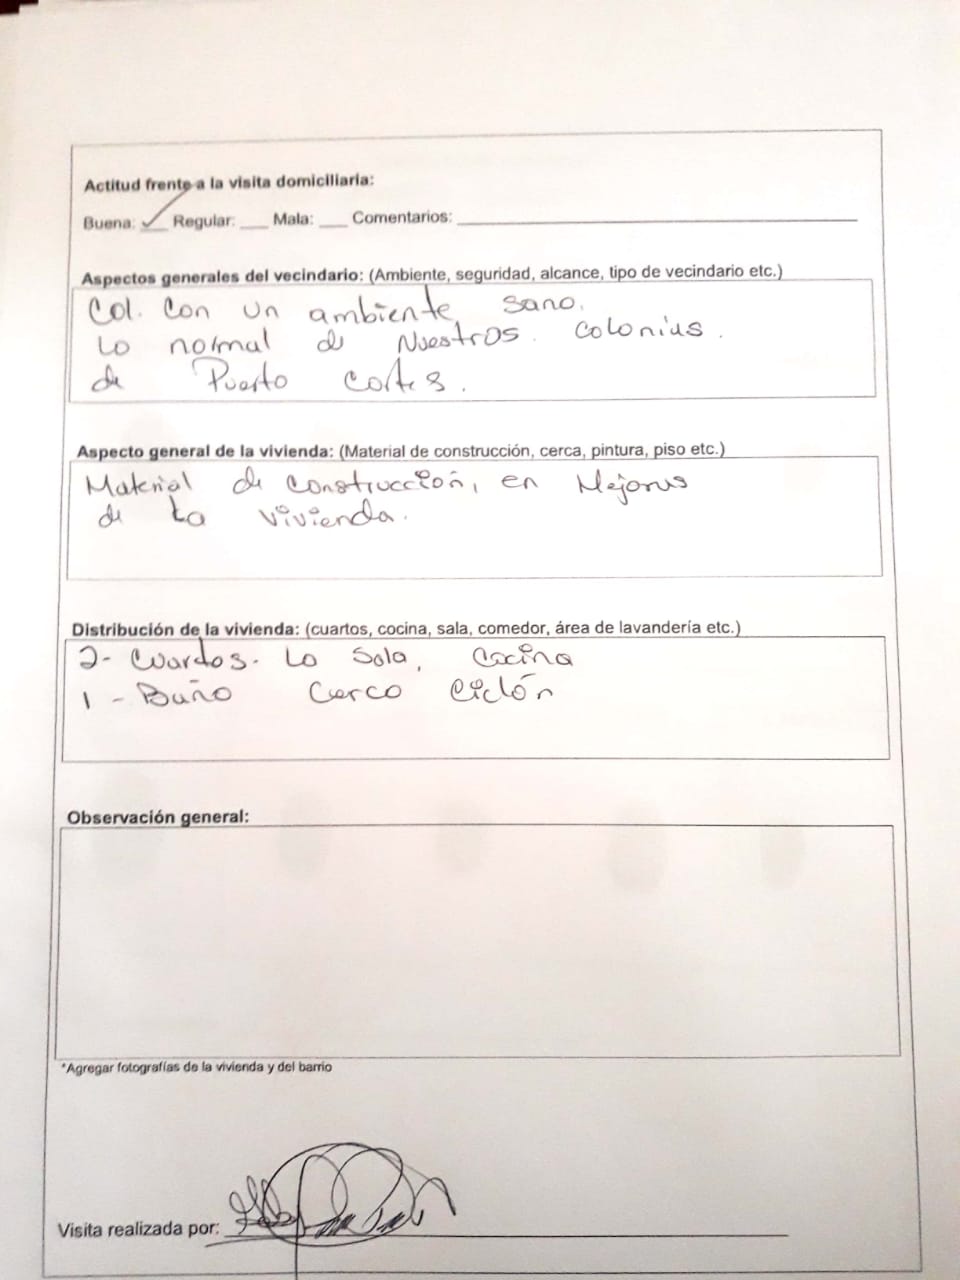 Actitud frente a la visita domiciliaria:
Buena: ✓ Regular: ___ Mala: ___ Comentarios: ___
Aspectos generales del vecindario: (Ambiente, seguridad, alcance, tipo de vecindario etc.)
Col. Con un ambiente sano.
Lo normal de Nuestros. colonias.
de Puerto Cortes.
Aspecto general de la vivienda: (Material de construcción, cerca, pintura, piso etc.)
Material de Construcción, en Mejoras
de La vivienda.
Distribución de la vivienda: (cuartos, cocina, sala, comedor, área de lavandería etc.)
2- Cuardos. La Sala, Cocina
1 - Baño Cerco Ciclón
Observación general:
*Agregar fotografías de la vivienda y del barrio
Visita realizada por: